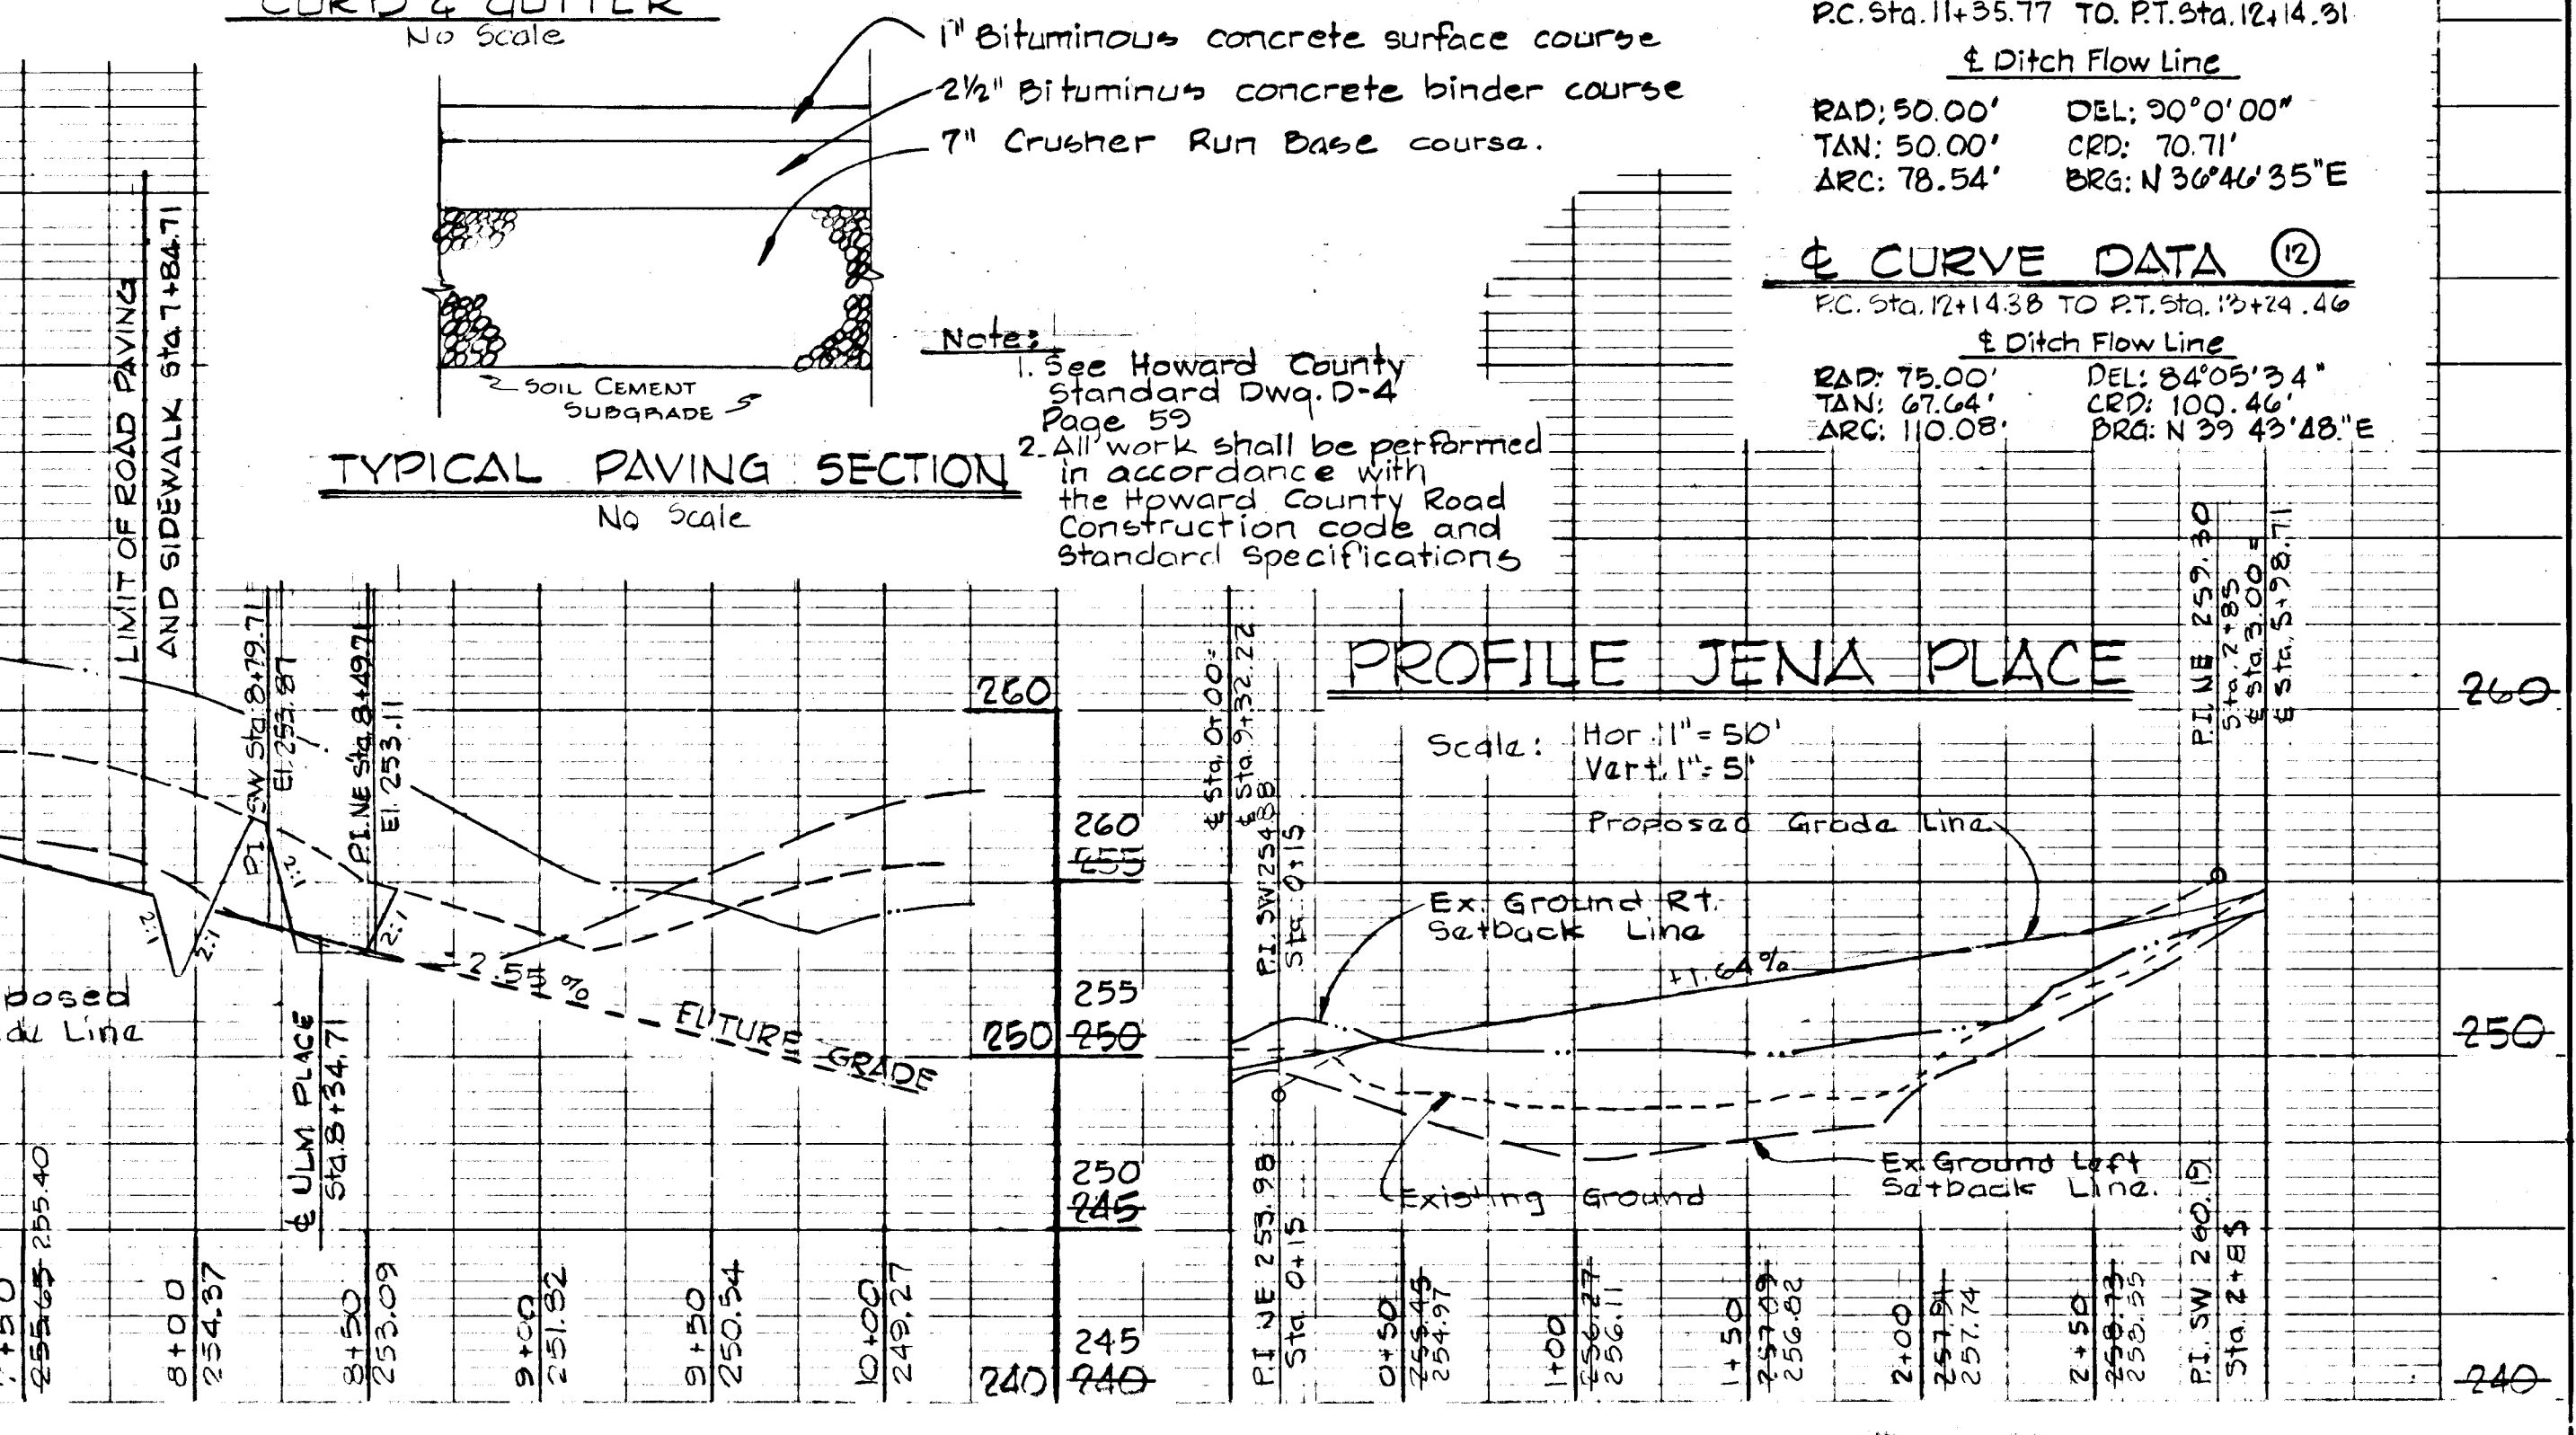 CURB & GUTTER
No Scale
1" Bituminous concrete surface course
2½" Bituminus concrete binder course
7" Crusher Run Base course.
SOIL CEMENT
SUBGRADE
TYPICAL PAVING SECTION
No Scale
Note:
1. See Howard County
Standard Dwg. D-4
Page 59
2. All work shall be performed
in accordance with
the Howard County Road
Construction code and
Standard Specifications
P.C. Sta. 11+35.77 TO. P.T. Sta. 12+14.31
℄ Ditch Flow Line
RAD: 50.00' DEL: 90°0'00"
TAN: 50.00' CRD: 70.71'
ARC: 78.54' BRG: N 36°46'35"E
℄ CURVE DATA 12
P.C. Sta. 12+14.38 TO P.T. Sta. 13+24.46
℄ Ditch Flow Line
RAD: 75.00' DEL: 84°05'34"
TAN: 67.64' CRD: 100.46'
ARC: 110.08' BRG: N 39 43'48."E
LIMIT OF ROAD PAVING
AND SIDEWALK Sta. 7+84.71
P.I. SW Sta. 8+79.71
El. 253.87
P.I. NE Sta. 8+49.71
El. 253.11
1:2
2:1
1:2
2:1
posed
de Line
-2.55 %
FUTURE GRADE
℄ ULM PLACE
Sta. 8+34.71
260
250
240
260
255
255
250
250
245
245
240
+50
255.65 255.40
8+00
254.37
8+50
253.09
9+00
251.82
9+50
250.54
10+00
249.27
PROFILE JENA PLACE
Scale: Hor. 1"= 50'
Vert. 1"= 5'
℄ Sta. 0+00=
℄ Sta. 9+32.22
P.I. SW 254.88
Sta. 0+15
P.I. NE 253.98
Sta. 0+15
Proposed Grade Line
Ex. Ground Rt.
Setback Line
+1.64%
Existing Ground
Ex. Ground Left
Setback Line.
P.I. NE 259.30
Sta. 2+85
℄ Sta. 3.00 =
℄ Sta. 5+98.71
P.I. SW 260.19
Sta. 2+85
0+50
255.45
254.97
1+00
256.27
256.11
1+50
257.09
256.82
2+00
257.91
257.74
2+50
258.73
258.55
260
250
240